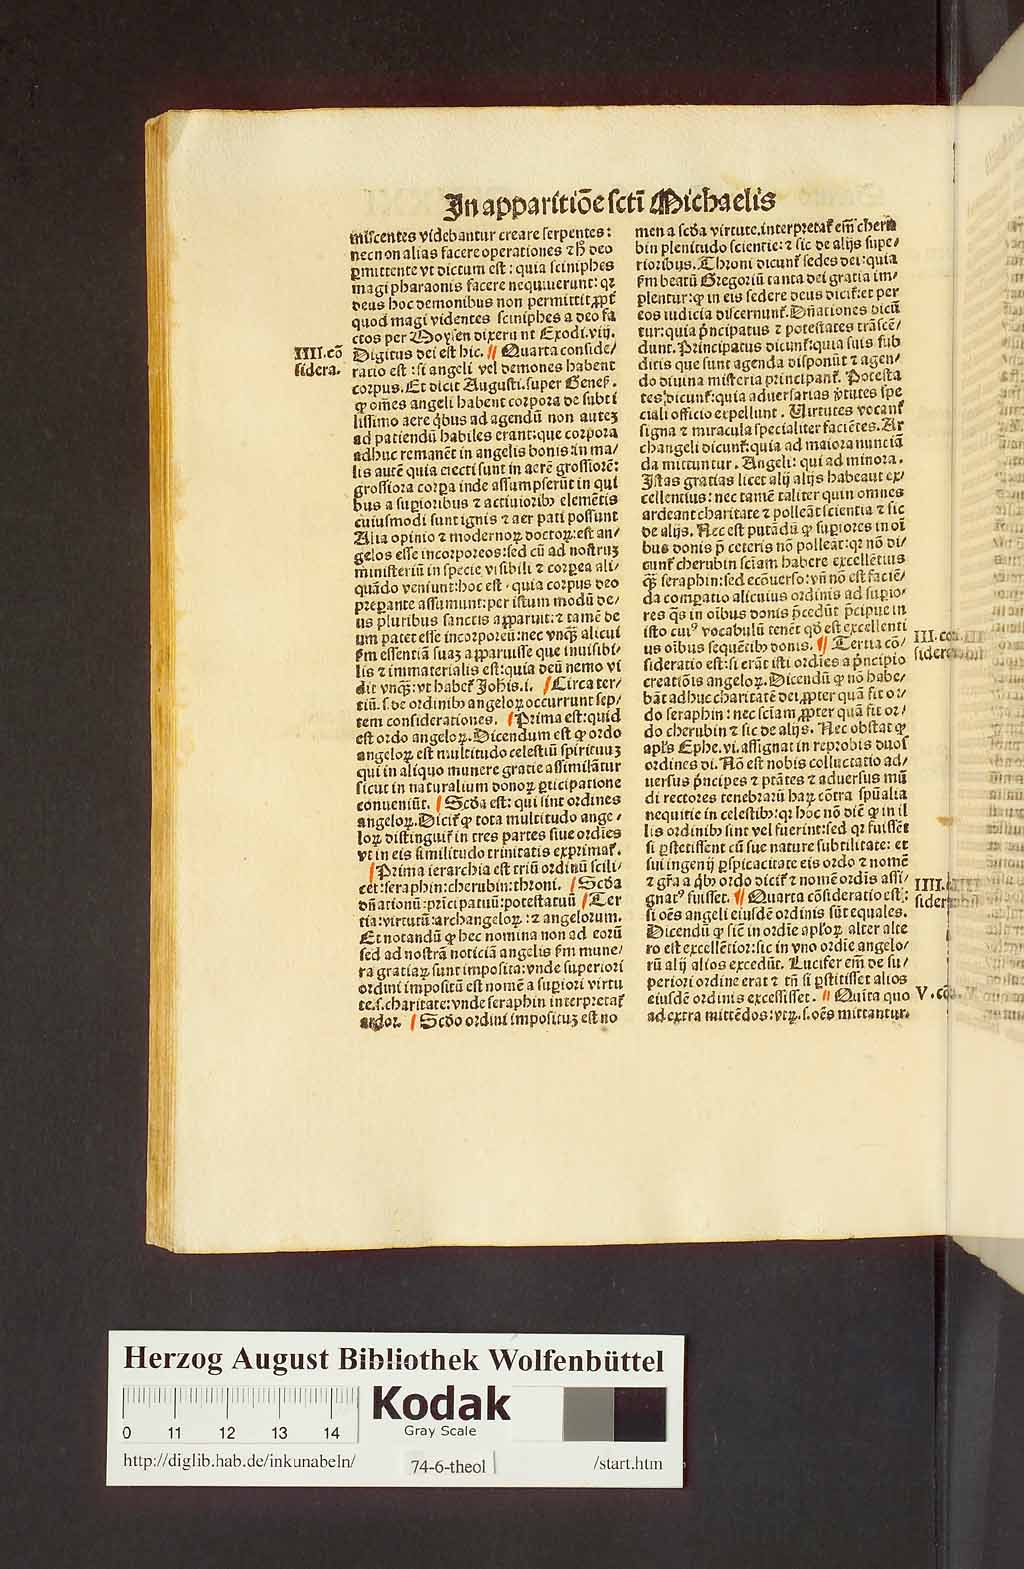 In apparitiōe sctī Michaelis
miscentes videbantur creare serpentes:
necnon alias facere operationes ⁊ hͦ deo
ꝑmittente vt dictum est: quia sciniphes
magi pharaonis facere nequiuerunt: qꝛ
deus hoc demonibus non permittit ꝓpt̄
quod magi videntes sciniphes a deo fa
ctos per Moysen dixerunt Exodi. viij.
IIII. cō
sidera.
Digitus dei est hic. Quarta conside/
ratio est: si angeli vel demones habent
corpus. Et dicit Augusti. super Genes̄.
ꝙ om̄es angeli habent corpora de subti
lissimo aere q̇bus ad agendū non autez
ad patiendū habiles erant: que corpora
adhuc remanēt in angelis bonis: in ma/
lis autē quia eiecti sunt in aerē grossiorē:
grossiora corꝑa inde assumpserūt in qui
bus a suꝑioribus ⁊ actiuioribꝫ elemētis
cuiusmodi sunt ignis ⁊ aer pati possunt
Alia opinio ⁊ modernoꝝ doctoꝝ: est an/
gelos esse incorporeos: sed cū ad nostruꝫ
ministeriū in specie visibili ⁊ corꝑea ali/
quādo veniunt: hoc est quia corpus deo
preꝑante assumunt: per istum modū de/
us pluribus sanctis apparuit: ⁊ tamē de
um patet esse incorporeū: nec vnqꝫ̄ alicui
fm essentiā suaꝫ apparuisse que inuisibi/
lis ⁊ immaterialis est: quia deū nemo vi
dit vnqꝫ̄: vt habet̄ Johis. i. Circa ter/
tiū. s. de ordinibꝫ angeloꝝ occurrunt sep/
tem considerationes. Prima est: quid
est ordo angeloꝝ. Dicendum est ꝙ ordo
angeloꝝ est multitudo celestiū spirituuꝫ
qui in aliquo munere gratie assimilātur
sicut in naturalium donoꝝ ꝑticipatione
conueniūt. Scd̄a est: qui sint ordines
angeloꝝ. Dicit̄ ꝙ tota multitudo ange/
loꝝ distinguit̄ in tres partes siue ordies
vt in eis similitudo trinitatis exprimat̄.
Prima ierarchia est triū ordinū scili/
cet: seraphin: cherubin: throni. Scd̄a
dn̄ationū: prīcipatuū: potestatuū Ter
tia: virtutū: archangeloꝝ: ⁊ angelorum.
Et notandū ꝙ hec nomina non ad eorū
sed ad nostrā noticiā angelis fm mune/
ra gratiaꝝ sunt imposita: vnde superiori
ordini impositū est nomē a suꝑiori virtu
te. s. charitate: vnde seraphin interpretat̄
ardor. Scd̄o ordini imposituꝫ est no
men a scd̄a virtute. interpretat̄ em̄ cheru
bin plenitudo scientie: ⁊ sic de alijs supe/
rioribus. Throni dicunt̄ sedes dei: quia
fm beatū Gregoriū tanta dei gratia im/
plentur: ꝙ in eis sedere deus dicit̄: et per
eos iudicia discernunt̄. Dn̄ationes dicū
tur: quia p̄ncipatus ⁊ potestates trāscē/
dunt. Principatus dicunt̄: quia suis sub
ditis que sunt agenda disponūt ⁊ agen/
do diuina misteria principant̄. Potesta
tes: dicunt̄: quia aduersarias v̄tutes spe
ciali officio expellunt. Virtutes vocant̄
signa ⁊ miracula specialiter faciētes. Ar
changeli dicunt̄: quia ad maiora nunciā
da mittuntur. Angeli: qui ad minora.
Istas gratias licet alij alijs habeant ex/
cellentius: nec tamē taliter quin omnes
ardeant charitate ⁊ polleāt scientia ⁊ sic
de alijs. Nec est putādū ꝙ suꝑiores in oī
bus donis p̄ ceteris nō polleāt: qꝛ nō di/
cunt̄ cherubin scīam habere excellētius
qꝫ̄ seraphin: sed ecōuerso: vn̄ nō est faciē/
da comꝑatio alicuius ordinis ad suꝑio/
res qͥs in oībus donis p̄cedūt p̄cipue in
isto cuiꝰ vocabulū tenēt qd̄ est excellenti
us oībus sequētibꝫ donis. Tertia cō/
III. con
sidera
sideratio est: si erāt isti ordies a p̄ncipio
creatiōis angeloꝝ. Dicendū ꝙ nō habe/
bāt adhuc charitatē dei ꝓpter quā fit or/
do seraphin: nec scīam ꝓpter quā fit or/
do cherubin ⁊ sic de alijs. Nec obstat ꝙ
apl̄s Ephe. vi. assignat in reprobis duos
ordines di. Nō est nobis colluctatio ad/
uersus p̄ncipes ⁊ ptātes ⁊ aduersus mū
di rectores tenebrarū haꝝ cōtra spūalia
nequitie in celestibꝫ: qꝛ hoc nō diē ꝙ in il
lis ordinibꝫ sint vel fuerint: sed qꝛ fuissēt
si ꝑstetissent cū sue nature subtilitate: et
sui ingenij ꝑspicacitate eis ordo ⁊ nomē
⁊ gr̄a a q̇bꝫ ordo dicit̄ ⁊ nomē ordīs assi/
gnatꝰ fuisset. Quarta cōsideratio est:
IIII.
sidera
si oēs angeli eiusdē ordinis sūt equales.
Dicendū ꝙ sicͫ in ordie apl̄oꝝ alter alte
ro est excellētior: sic in vno ordie angelo/
rū alij alios excedūt. Lucifer em̄ de su/
periori ordine erat ⁊ tn̄ si ꝑstitisset alios
eiusdē ordinis excessisset. Quīta quo
V. cō
ad extra mittēdos: vtꝝ. s. oēs mittantur.
Herzog August Bibliothek Wolfenbüttel
Kodak
Gray Scale
0 11 12 13 14
http://diglib.hab.de/inkunabeln/ 74-6-theol /start.htm